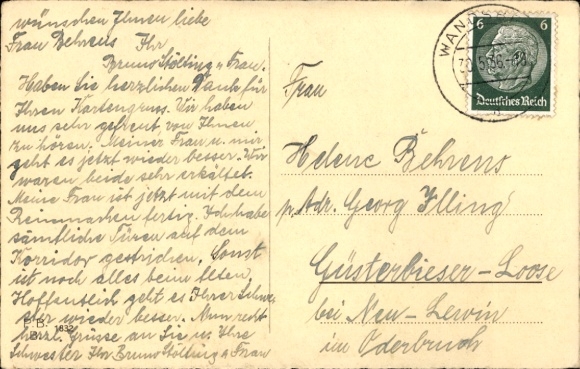 wünschen Ihnen liebe
Frau Behrens Ihr
Bruno Stölting u. Frau.
Haben Sie herzlichen Dank für
Ihren Kartengruss. Wir haben
uns sehr gefreut, von Ihnen
zu hören. Meiner Frau u. mir
geht es jetzt wieder besser. Wir
waren beide sehr erkältet.
Meine Frau ist jetzt mit dem
Reinmachen fertig. Ich habe
sämtliche Türen auf dem
Korridor gestrichen. Sonst
ist noch alles beim Alten.
Hoffentlich geht es Ihrer Schwe-
ster wieder besser. Nun recht
herzl. Grüsse an Sie u. Ihre
Schwester Ihr Bruno Stölting u. Frau
B.B.
1832
6 6
Deutsches Reich
Frau
Helene Behrens
p. Adr. Georg Illing
Güsterbieser-Loose
bei Neu-Lewin
im Oderbruch